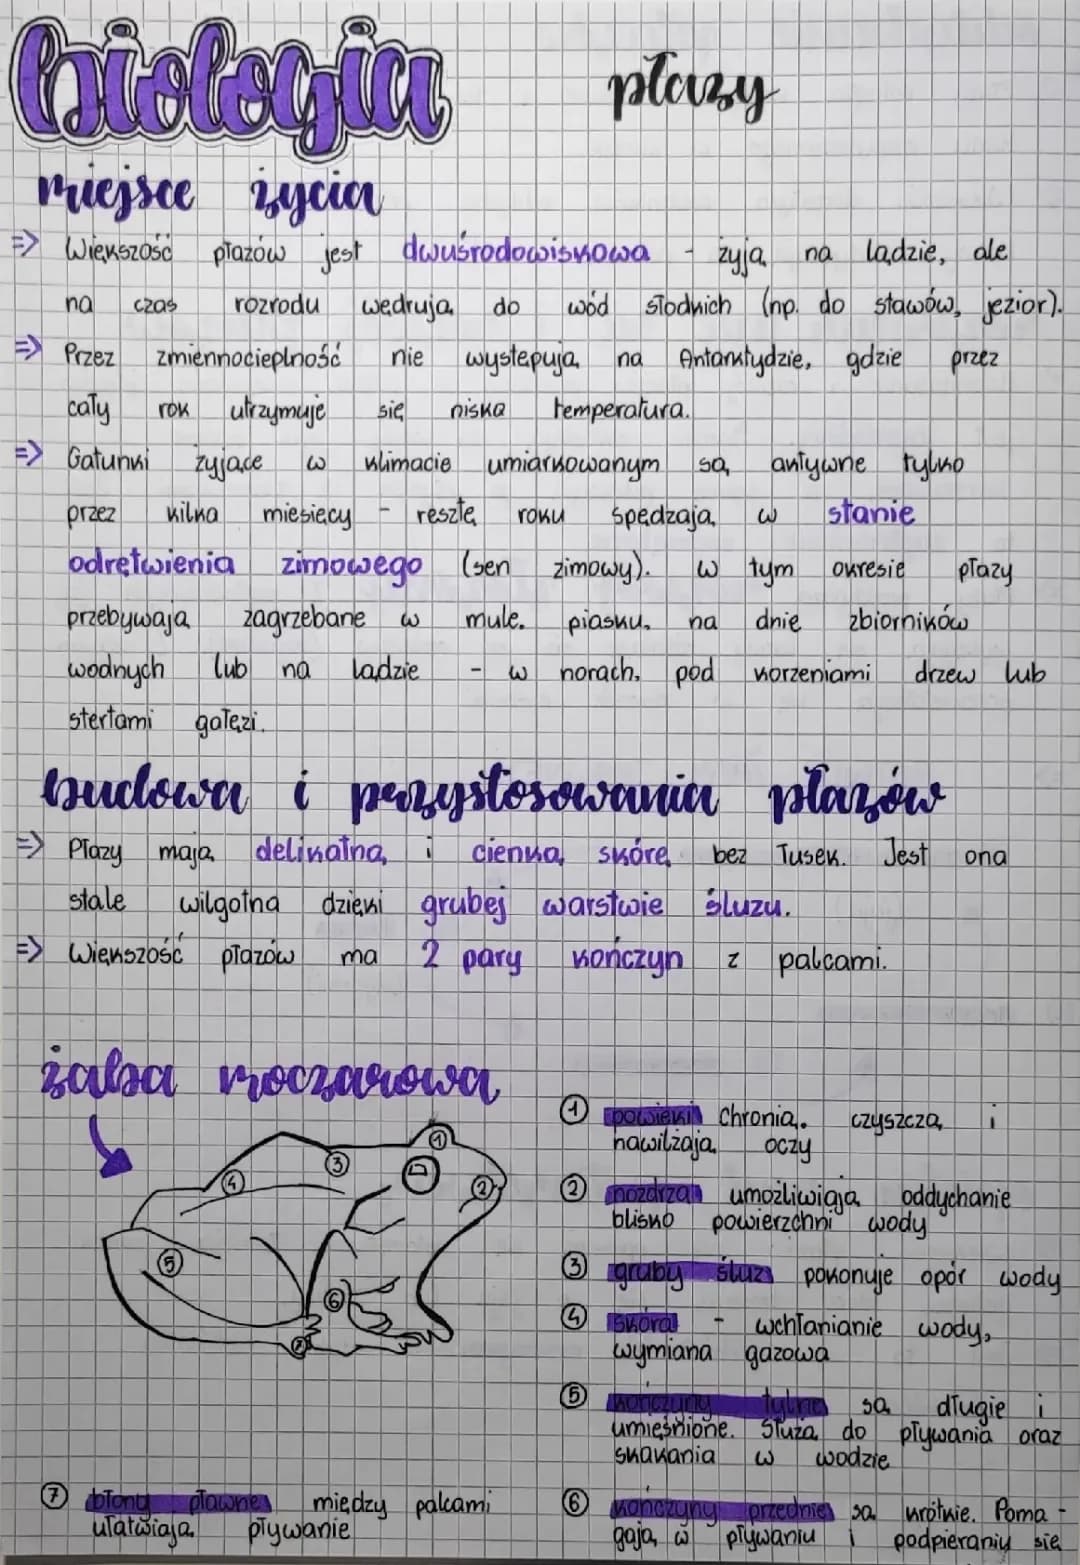 biologia
płazy
miejsce życia
=> Większość płazów jest dwuśrodowiskowa - żyją na lądzie, ale
na czas rozrodu wędrują do wód słodkich (np. do stawów, jezior).
=> Przez zmiennocieplność nie występują na Antarktydzie, gdzie przez
cały rok utrzymuje się niska temperatura.
=> Gatunki żyjące w klimacie umiarkowanym są aktywne tylko
przez kilka miesięcy - resztę roku spędzają w stanie
odrętwienia zimowego (sen zimowy). w tym okresie płazy
przebywają zagrzebane w mule, piasku, na dnie zbiorników
wodnych lub na lądzie - w norach, pod korzeniami drzew lub
stertami gałęzi.
budowa i przystosowania płazów
=> Płazy mają delikatną i cienką skórę bez łusek. Jest ona
stale wilgotna dzięki grubej warstwie śluzu.
=> Większość płazów ma 2 pary kończyn z palcami.
żaba moczarowa
1
2
3
4
5
6
7
① powieki chronią, czyszczą i
nawilżają oczy
② nozdrza umożliwiają oddychanie
blisko powierzchni wody
③ gruby śluz pokonuje opór wody
④ skóra - wchłanianie wody,
wymiana gazowa
⑤ kończyny tylne są długie i
umięśnione. Służą do pływania oraz
skakania w wodzie
⑥ kończyny przednie są krótkie. Poma -
gają w pływaniu i podpieraniu się
⑦ błony pławne między palcami
ułatwiają pływanie